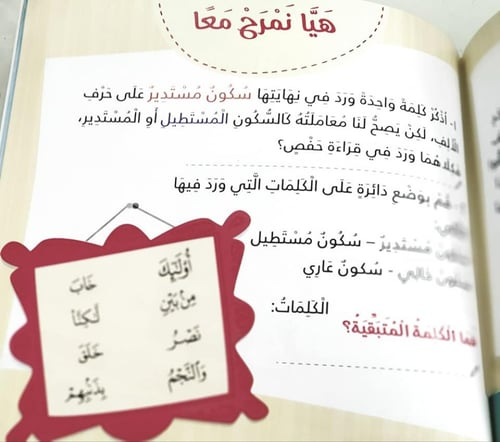 هَيَّا نَمْرَحْ مَعًا
١- أَذْكُرُ كَلِمَةً وَاحِدَةً وَرَدَ فِي نِهَايَتِهَا سُكُونٌ مُسْتَدِيرٌ عَلَى حَرْفِ
الْأَلِفِ، لَكِنْ يَصِحُّ لَنَا مُعَامَلَتُهُ كَالسُّكُونِ الْمُسْتَطِيلِ أَوِ الْمُسْتَدِيرِ،
كِلَاهُمَا وَرَدَ فِي قِرَاءَةِ حَفْصٍ؟
قُمْ بِوَضْعِ دَائِرَةٍ عَلَى الْكَلِمَاتِ الَّتِي وَرَدَ فِيهَا
سُكُونٌ مُسْتَدِيرٌ – سُكُونٌ مُسْتَطِيلٌ
خَالِي - سُكُونٌ عَارِي
الْكَلِمَاتُ:
فَمَا الْكَلِمَةُ الْمُتَبَقِّيَةُ؟
أُوْلَٰٓئِكَ خَابَ
مِنۢ بَيْنِ لَّٰكِنَّا۠
نَصْرُ خَلَقَ
وَالنَّجْمُ بِذَنۢبِهِمْ